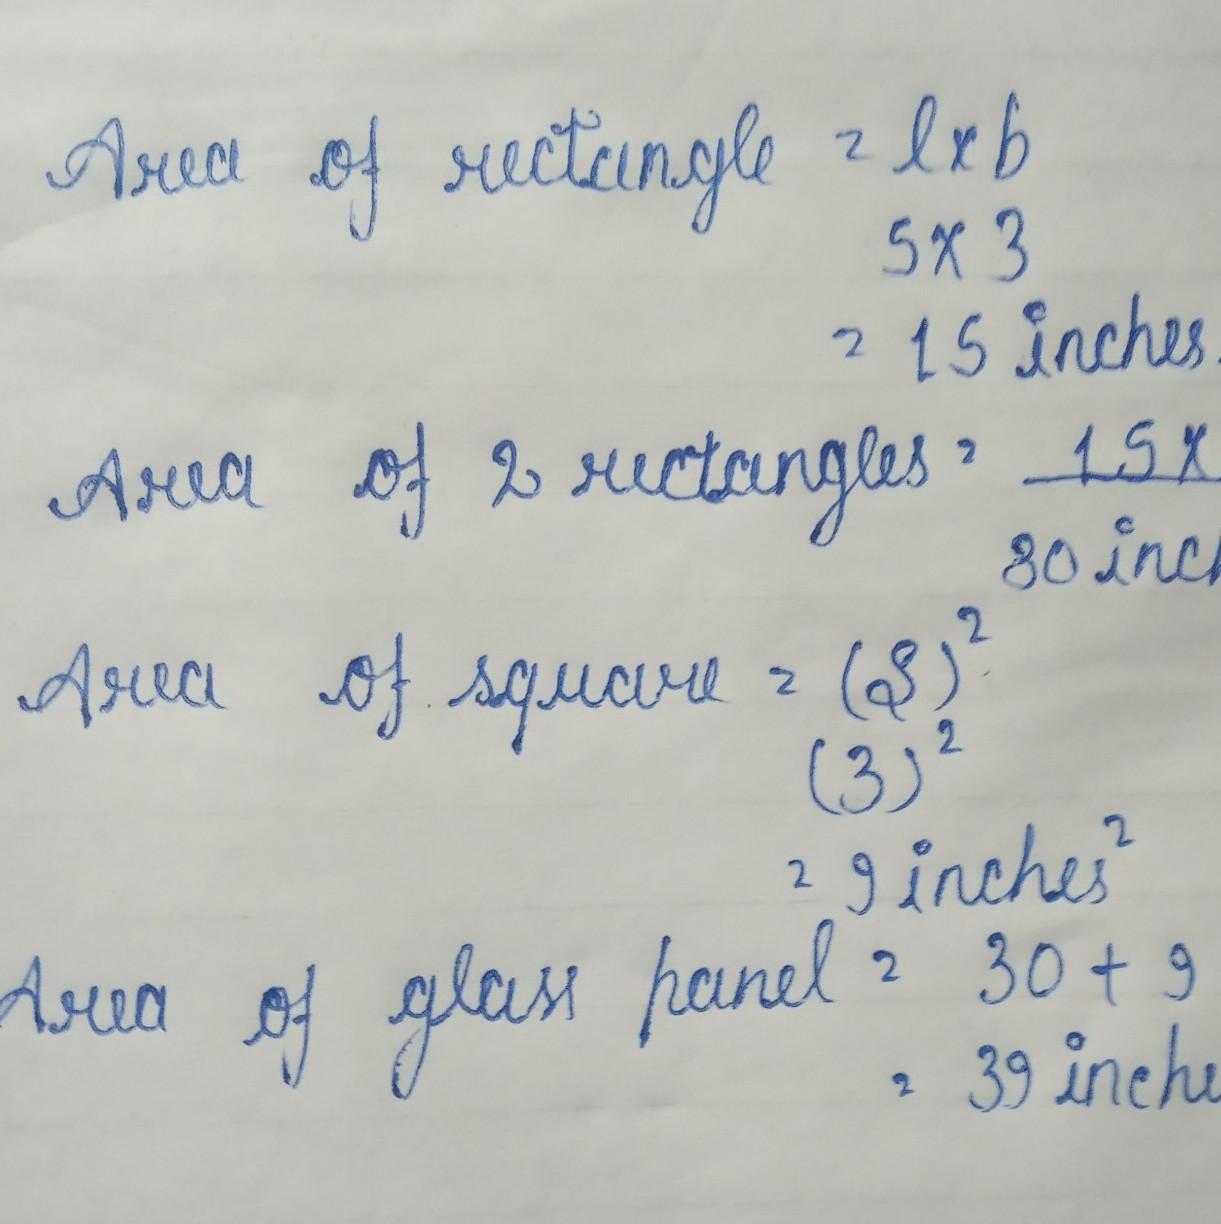 Area of rectangle = l x b
5 x 3
= 15 inches.
Area of 2 rectangles = 15 x
30 inch
Area of square = (S)²
(3)²
= 9 inches²
Area of glass panel = 30 + 9
= 39 inche